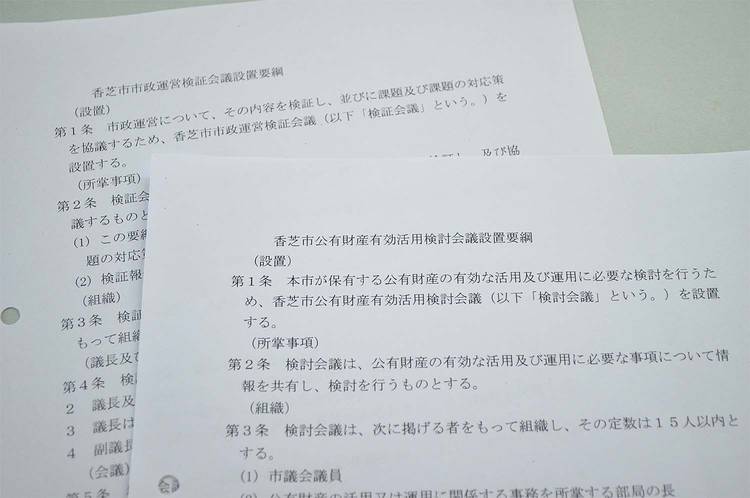 香芝市市政運営検証会議設置要綱
（設置）
第１条　市政運営について、その内容を検証し、並びに課題及び課題の対応策
を協議するため、香芝市市政運営検証会議（以下「検証会議」という。）を
設置する。
（所掌事項）
第２条　検証会
議するものと
(1) この要綱
題の対応策
(2) 検証報
（組織）
第３条　検証
もって組織
（議長及び
第４条　検
２　議長及
３　議長は
４　副議長
（会議）
第５条
及び協
香芝市公有財産有効活用検討会議設置要綱
（設置）
第１条　本市が保有する公有財産の有効な活用及び運用に必要な検討を行うた
め、香芝市公有財産有効活用検討会議（以下「検討会議」という。）を設置
する。
（所掌事項）
第２条　検討会議は、公有財産の有効な活用及び運用に必要な事項について情
報を共有し、検討を行うものとする。
（組織）
第３条　検討会議は、次に掲げる者をもって組織し、その定数は１５人以内と
する。
(1) 市議会議員
(2) 公有財産の活用又は運用に関係する事務を所掌する部局の長